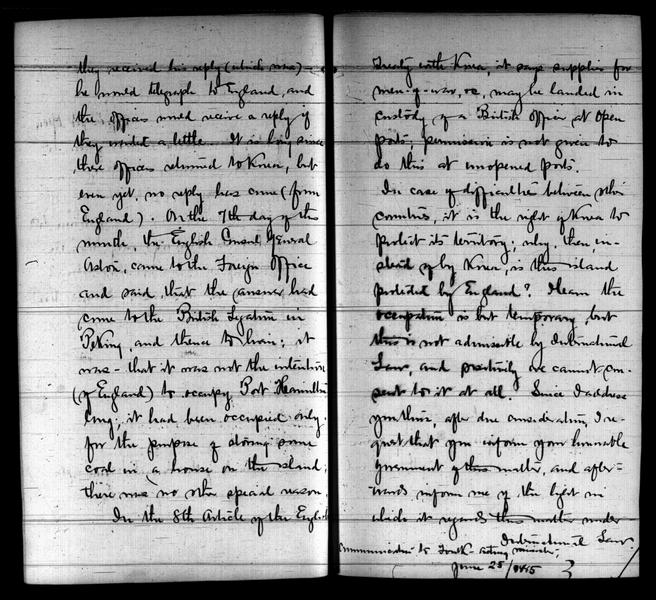 they received his reply (which was) – 
he would telegraph to England, and
the officers would receive a reply if
they waited a little. It is long since
these officers returned to Korea, but
even yet, no reply has come (from
England). On the 7th day of this
month, the English Consul General
Aston, came to the Foreign Office
and said that the answer had
come to the British Legation in
Peking, and thence to him; it
was – that it was not the intention
(of England) to occupy Port Hamilton
long; it had been occupied only
for the purpose of storing some
coal in a house on the island;
there was no other special reason.
In the 8th Article of the English
Treaty with Korea, it says supplies for
men-of-war, &c, may be landed in
custody of a British officer at open
ports; permission is not given to
do this at unopened ports.
In case of difficulties between other
countries, it is the right of Korea to
protect its territory; why, then, in-
stead of by Korea, is this island
protected by England? I learn the
occupation is but temporary, but
this is not admissible by International
Law, and positively we cannot con-
sent to it at all. Since I address
you this, after due consideration, I re-
quest that you inform your honorable
Government of this matter, and after-
wards inform me of the light in
which it regards this matter under
International Law.
Communication to Foulk – acting minister,
June 25/1885